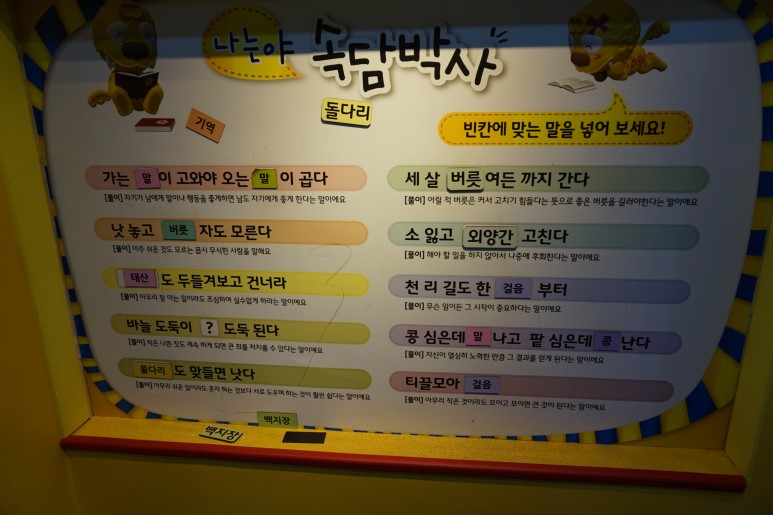 나는야 속담박사
돌다리
기역
빈칸에 맞는 말을 넣어 보세요!
가는 말 이 고와야 오는 말 이 곱다
[풀이] 자기가 남에게 말이나 행동을 좋게하면 남도 자기에게 좋게 한다는 말이에요
낫 놓고 버릇 자도 모른다
[풀이] 아주 쉬운 것도 모르는 몹시 무식한 사람을 말해요
태산 도 두들겨보고 건너라
[풀이] 아무리 잘 아는 일이라도 조심하여 실수없게 하라는 말이에요
바늘 도둑이 ? 도둑 된다
[풀이] 작은 나쁜 짓도 계속 하게 되면 큰 죄를 저지를 수 있다는 말이에요
돌다리 도 맞들면 낫다
[풀이] 아무리 쉬운 일이라도 혼자 하는 것보다 서로 도우며 하는 것이 훨씬 쉽다는 말이에요
세 살 버릇 여든 까지 간다
[풀이] 어릴 적 버릇은 커서 고치기 힘들다는 뜻으로 좋은 버릇을 길러야한다는 말이에요
소 잃고 외양간 고친다
[풀이] 해야 할 일을 하지 않아서 나중에 후회한다는 말이에요
천 리 길도 한 걸음 부터
[풀이] 무슨 일이든 그 시작이 중요하다는 말이에요
콩 심은데 말 나고 팥 심은데 콩 난다
[풀이] 자신이 열심히 노력한 만큼 그 결과를 얻게 된다는 말이에요
티끌모아 걸음
[풀이] 아무리 작은 것이라도 모이고 모이면 큰 것이 된다는 말이에요
백지장
백지장